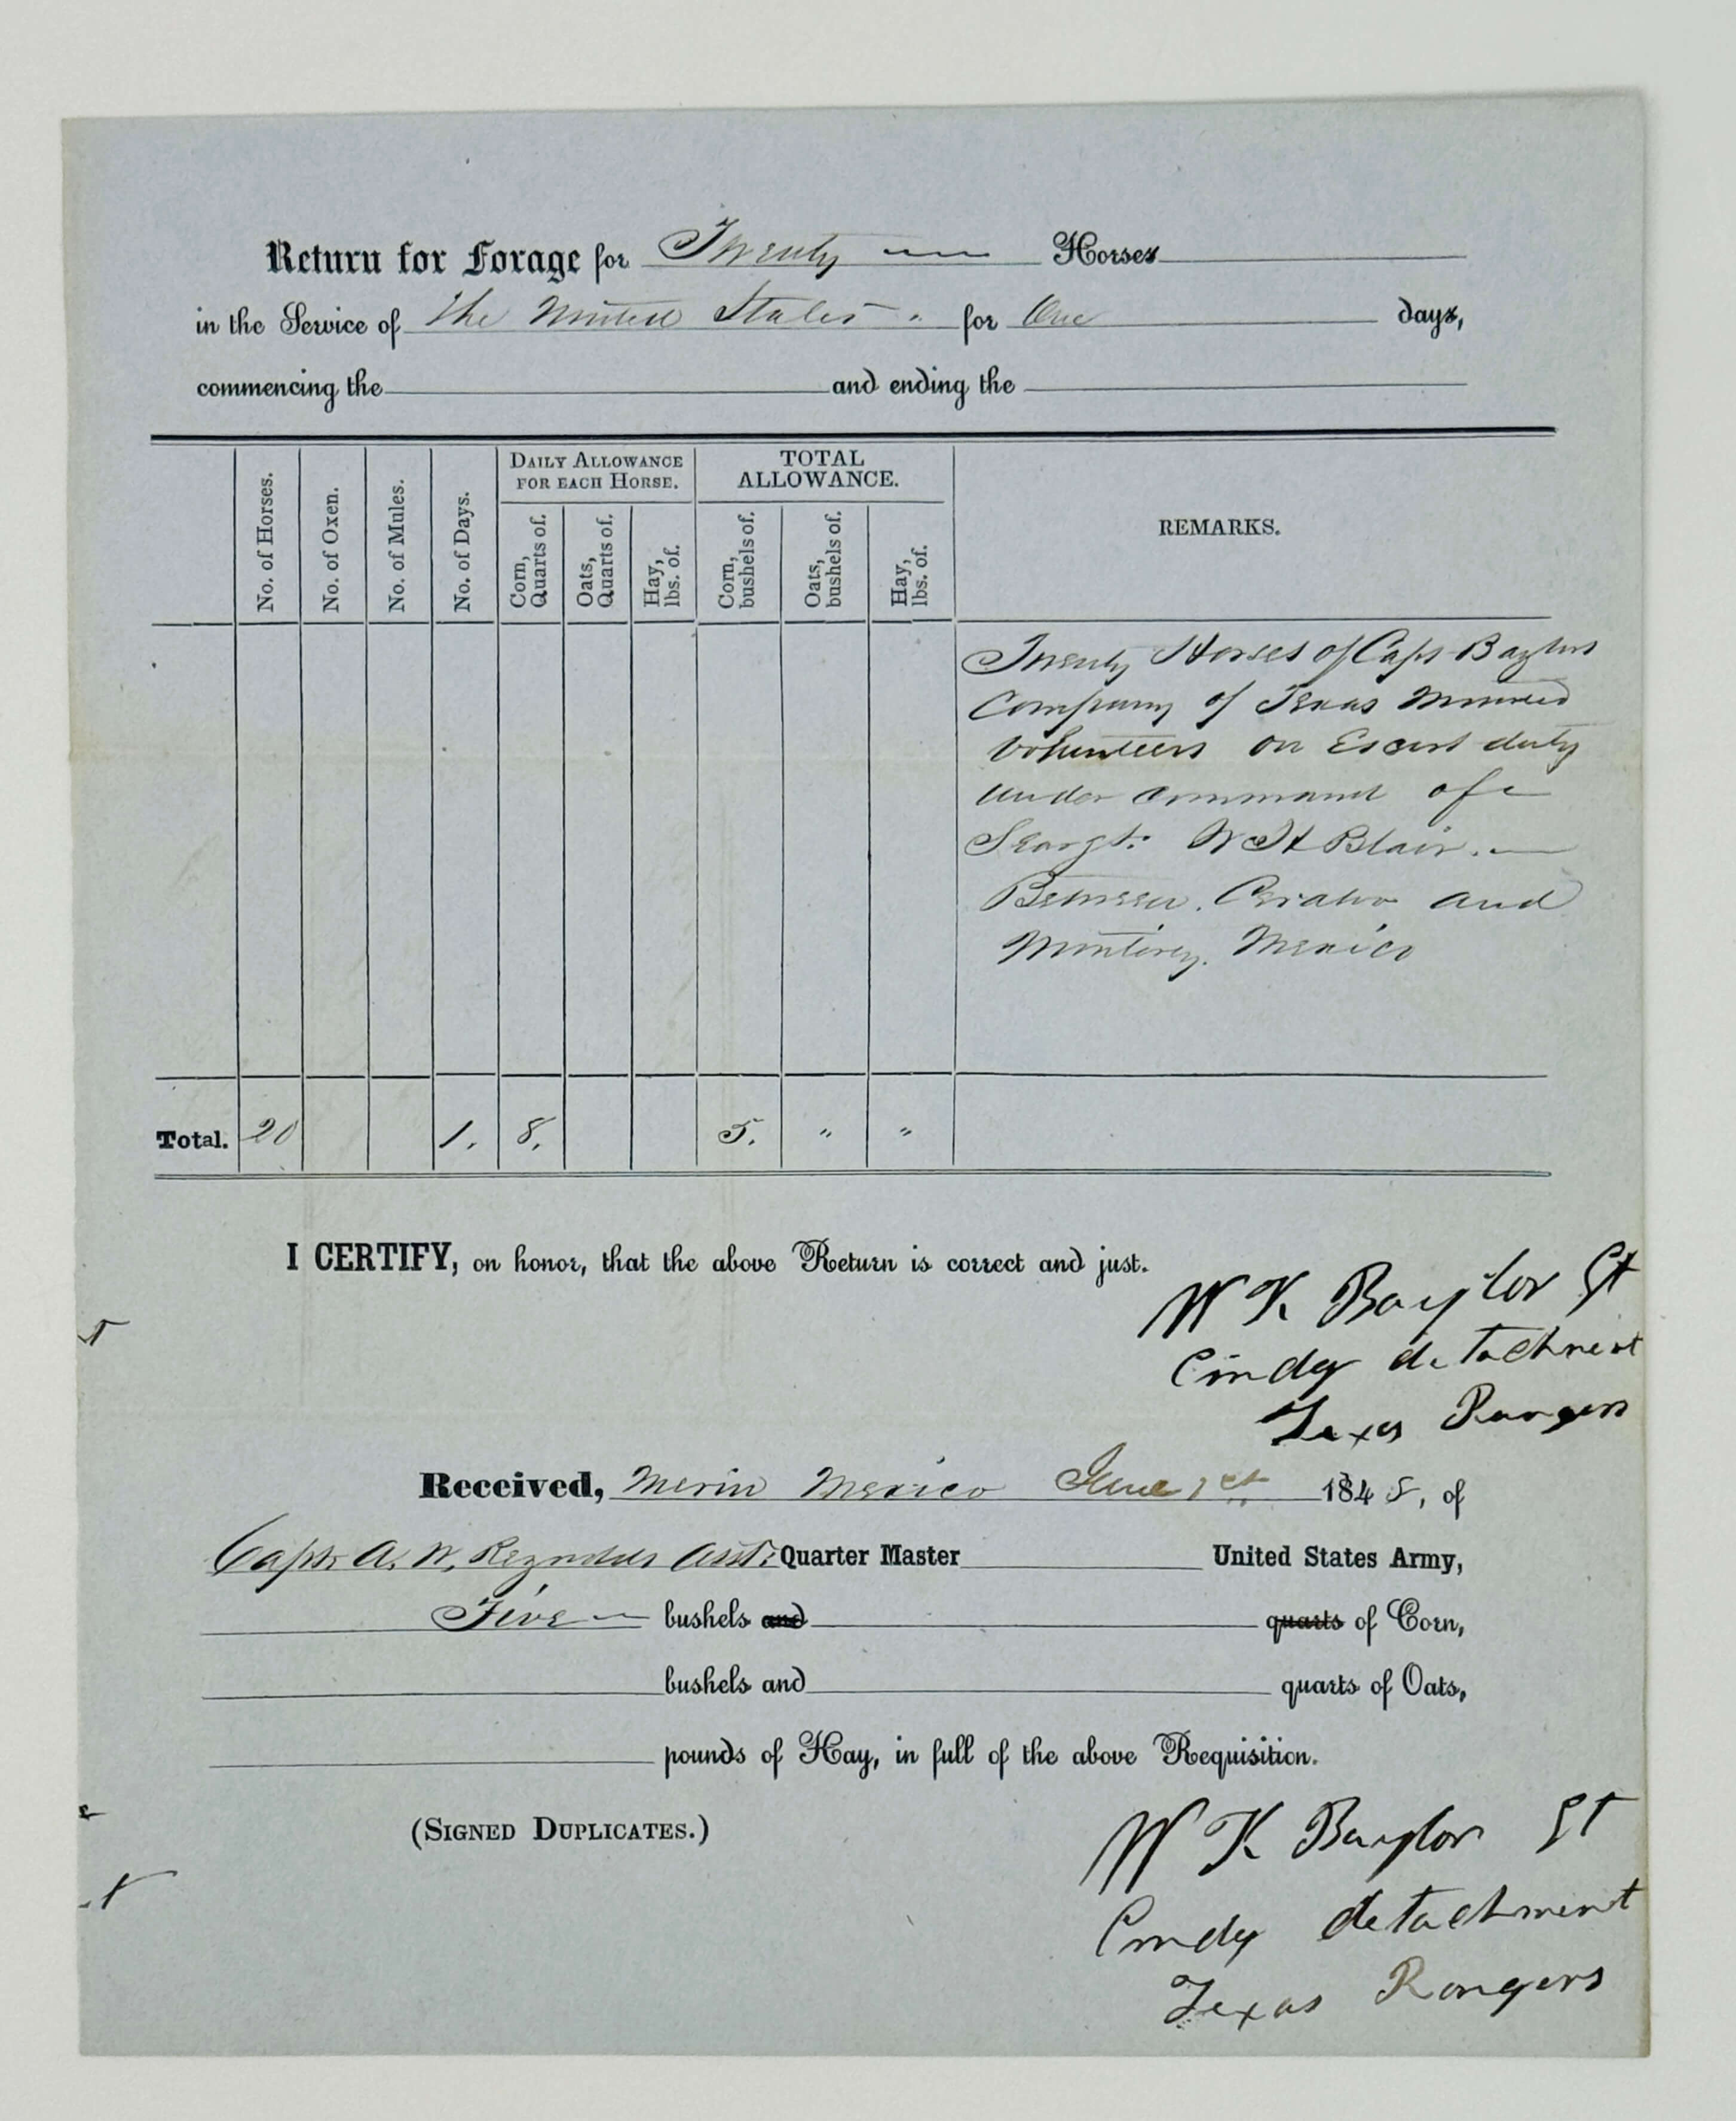 Return for Forage for Twenty — Horses
in the Service of the United States . for One days,
commencing the and ending the
DAILY ALLOWANCE FOR EACH HORSE.
TOTAL ALLOWANCE.
No. of Horses.
No. of Oxen.
No. of Mules.
No. of Days.
Corn, Quarts of.
Oats, Quarts of.
Hay, lbs. of.
Corn, bushels of.
Oats, bushels of.
Hay, lbs. of.
REMARKS.
Twenty Horses of Capt Baylors
Company of Texas Mounted
Volunteers on Escort duty
under command of
Seargt. W H Blair. —
Between . Ceralvo and
Monterey. Mexico
Total. 20 1. 8. 5. " "
I CERTIFY, on honor, that the above Return is correct and just.
W K Baylor
Comdg detachment
Texas Rangers
Received, Merin Mexico June 1st 1848, of
Capt. A. W. Reynolds Asst. Quarter Master United States Army,
Five — bushels and quarts of Corn,
bushels and quarts of Oats,
pounds of Hay, in full of the above Requisition.
(SIGNED DUPLICATES.)
W K Baylor
Comdg detachment
Texas Rangers